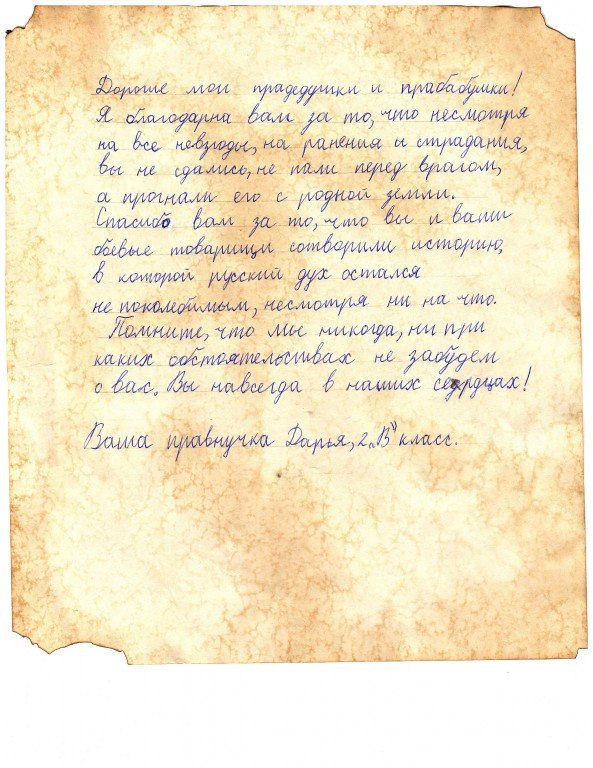 Дорогие мои прадедушки и прабабушки!
Я благодарна вам за то, что несмотря
на все невзгоды, на ранения и страдания,
вы не сдались, не пали перед врагом,
а прогнали его с родной земли.
Спасибо вам за то, что вы и ваши
боевые товарищи сотворили историю,
в которой русский дух остался
не поколебимым, несмотря ни на что.
Помните, что мы никогда, ни при
каких обстоятельствах не забудем
о вас. Вы навсегда в наших сердцах!
Ваша правнучка Дарья, 2 „В" класс.